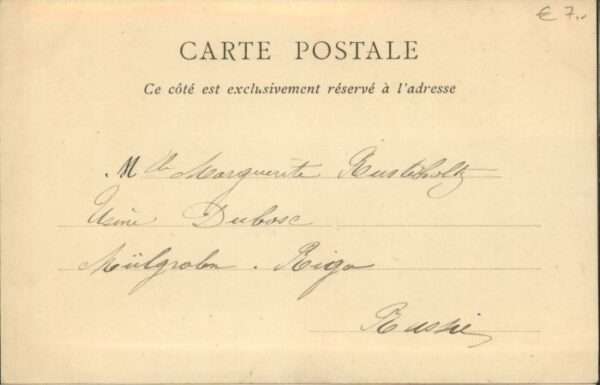 € 7,-
CARTE POSTALE
Ce côté est exclusivement réservé à l'adresse
Mlle Marguerite Rustéholtz
Usine Dubosc
Mülgraben. Riga
Russie